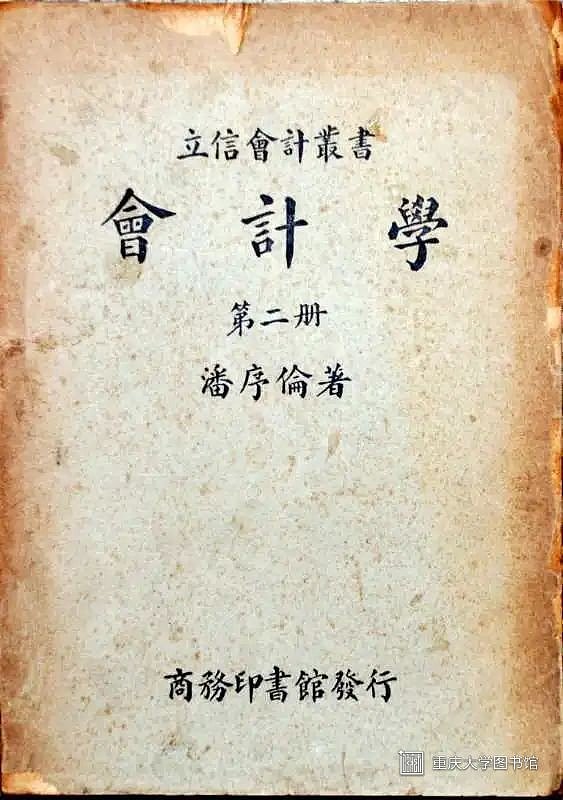 立信會計叢書
會計學
第二册
潘序倫著
商務印書館發行
重庆大学图书馆